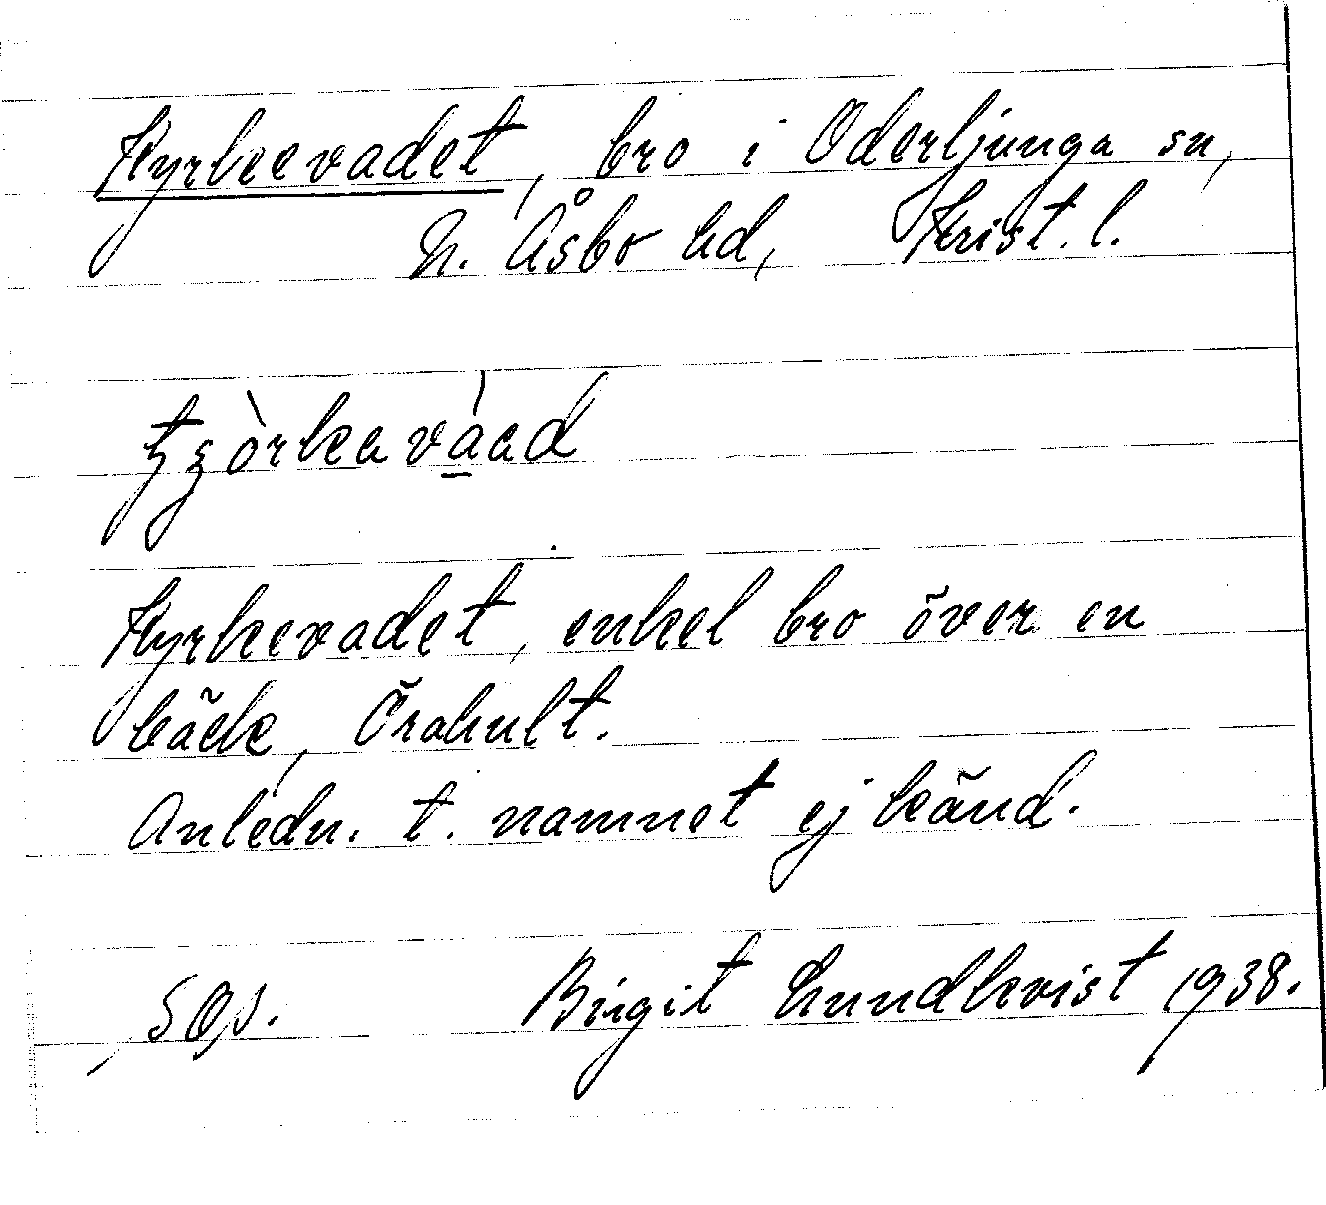 Kyrkevadet, bro i Oderljunga sn,
N. Åsbo hd, Krist. l.
Kyrkevadet, enkel bro över en
bäck, Örahult.
Anledn. t. namnet ej känd.
Birgit Lundkvist 1938.